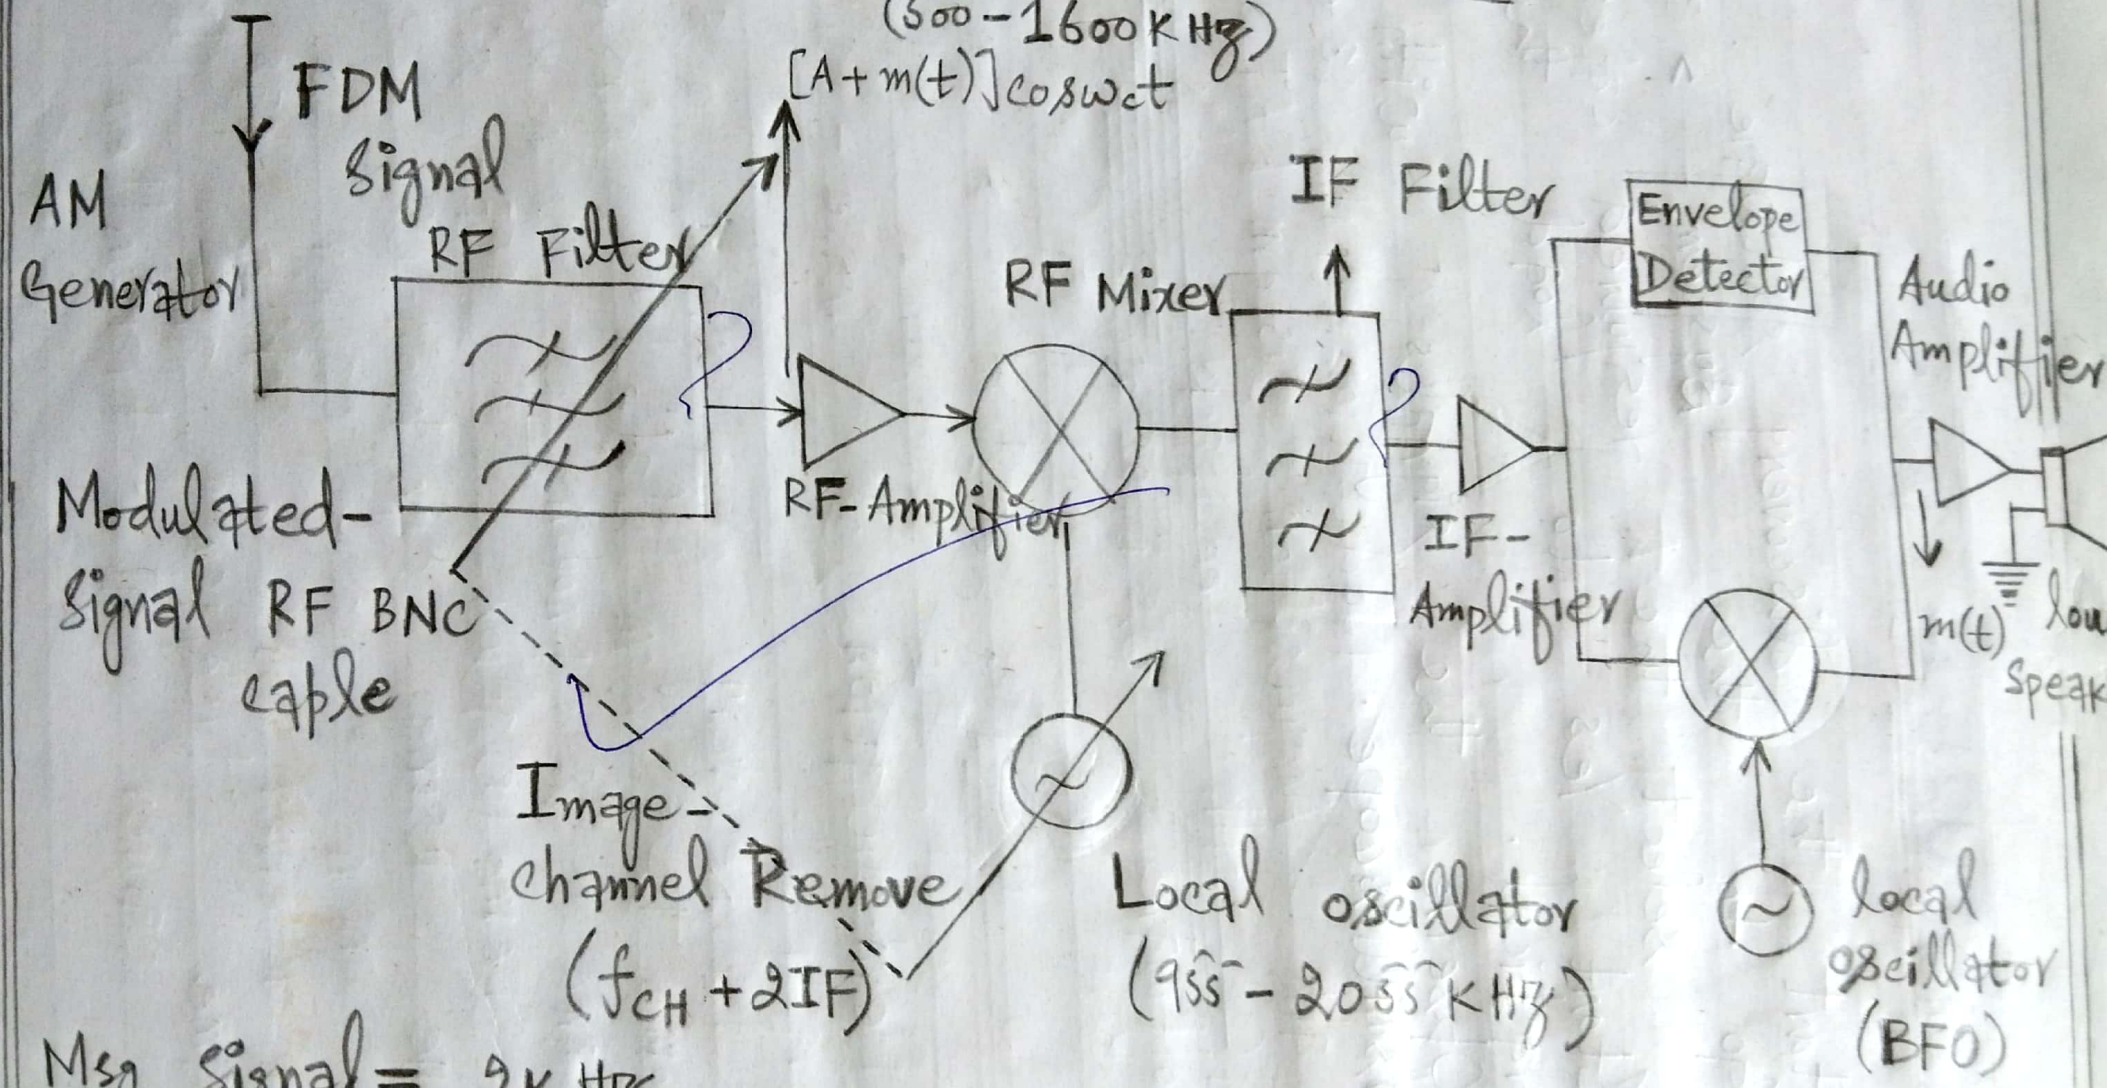 (500-1600KHz)
[A+m(t)]cosωct
FDM
Signal
AM
Generator
RF Filter
IF Filter
Envelope
Detector
RF Mixer
Audio
Amplifier
Modulated-
Signal RF BNC
cable
RF-Amplifier
IF-
Amplifier
m(t)
lou
Speak
Image-
channel Remove
(fCH+2IF)
Local oscillator
(955-2055KHz)
local
oscillator
(BFO)
Msg Signal =